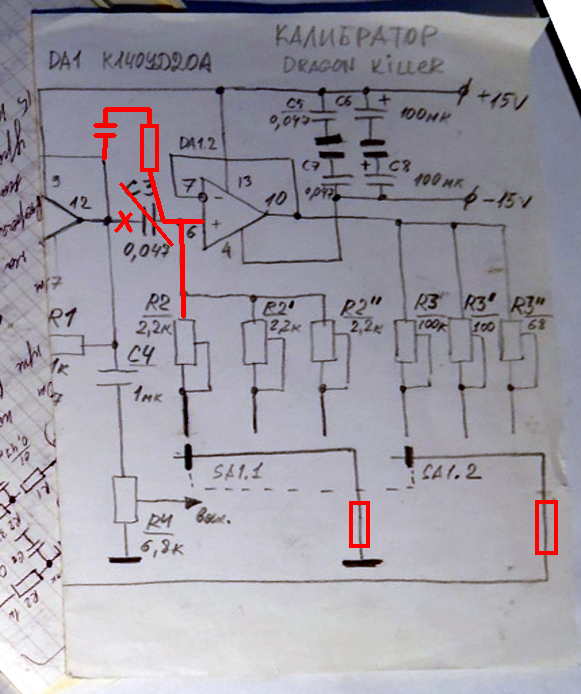 КАЛИБРАТОР
DA1 К140УД20А
DRAGON KiLLER
+15V
C5
0,047
C6
+
100мк
DA1.2
C7
0,047
+
C8
100мк
-15V
9
12
C3
0,047
7
-
13
10
+
6
4
R1
1к
C4
1мк
R2
2,2к
R2'
2,2к
R2"
2,2к
R3
100к
R3'
100
R3"
68
SA1.1
SA1.2
R4
6,8к
вых.